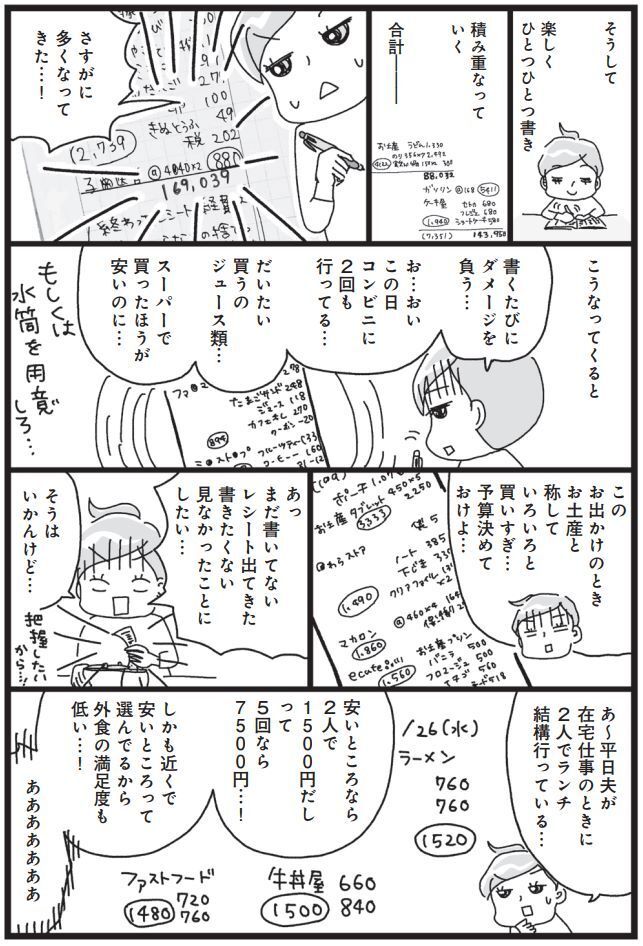 そうして
楽しく
ひとつひとつ書き
積み重なって
いく
合計――
お土産 うどん1,330
88,032
ガソリン @168 5411
ケーキ屋 セトル 680
680
1,940 ショートケーキ580
(7,351) 143,950
さすがに
多くなって
きた…!
271
100
49
きぬとうふ
税 202
(2,739
@4040×2 880
169,039
終わって
レシート
経費
こうなってくると
書くたびに
ダメージを
負う…
お…おい
この日
コンビニに
2回も
行ってる…
だいたい
買うの
ジュース類…
スーパーで
買ったほうが
安いのに…
もしくは
水筒を用意
しろ…
278
たまごサンド 248
ジュース 118
カフェオレ 270
クーポン -20
894
ミニストップ フルーツティー(33
コーヒー 160
この
お出かけのとき
お土産と
称して
いろいろと
買いすぎ…
予算決めて
おけよ…
ポーチ1.07
お土産 タブレット 450×5
3,333 2250
袋 5
わらストア ノート 385
下じき 33
クリアフォルダ
×2
1,490 @460×4
マカロン
1,860 お土産プリン
バニラ 500
ecute 500
1,560 フロマージュ 560
イチゴ 560
518
あっ
まだ書いてない
レシート出てきた
書きたくない
見なかったことに
したい…
そうは
いかんけど…
把握したい
から…!!
あ～平日夫が
在宅仕事のときに
2人でランチ
結構行っている…
1/26(水)
ラーメン
760
760
1520
安いところなら
2人で
1500円だし
って
5回なら
7500円…!
牛丼屋 660
1500 840
しかも近くで
安いところって
選んでるから
外食の満足度も
低い…!
ファストフード
720
1480 760
あああああああ